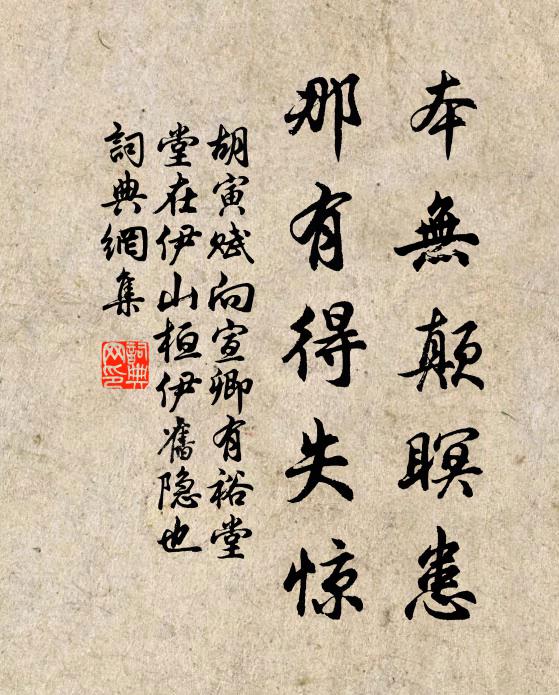 本無顛瞑患
那有得失惊
胡寅赋向宣卿有裕堂
堂在伊山桓伊舊隐也
詞典網集
詞典网印